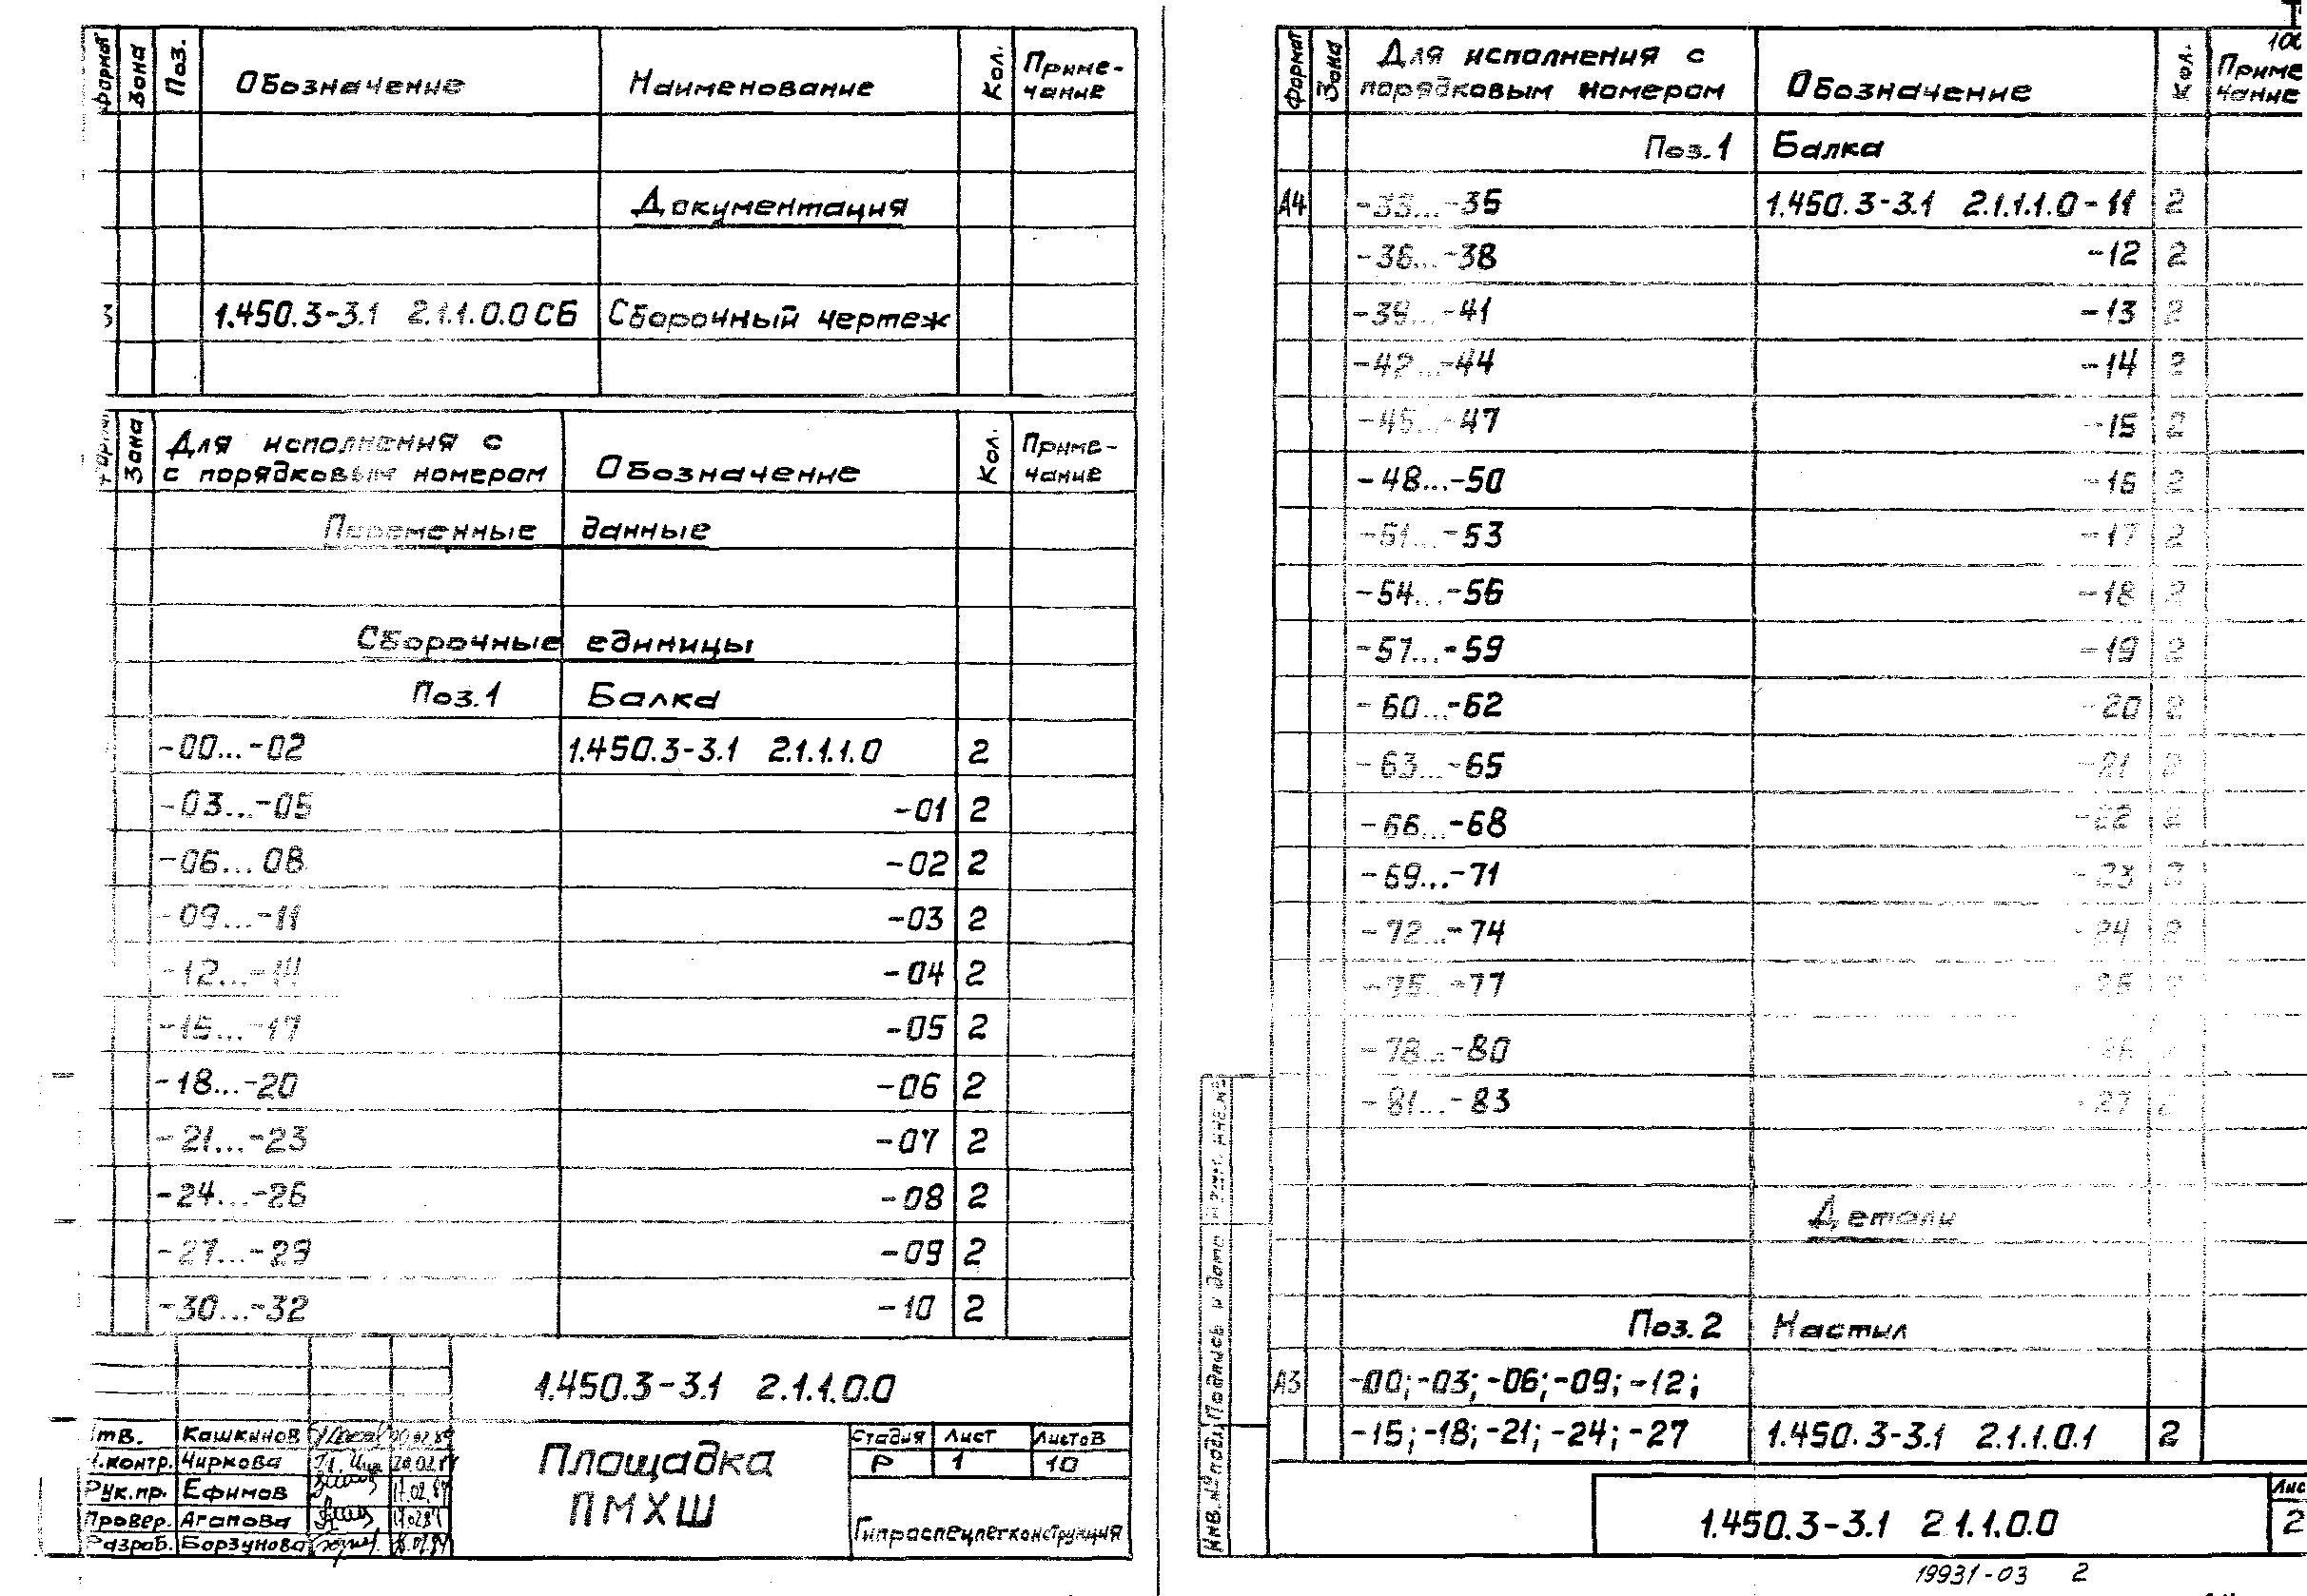 Формат Зона Поз. Обозначение Наименование Кол. Приме-
чание
Документация
3 1.450.3-3.1 2.1.1.0.0 СБ Сборочный чертеж
Зона Для исполнения с
с порядковым номером Обозначение Кол. Приме-
чание
Переменные данные
Сборочные единицы
Поз.1 Балка
-00...-02 1.450.3-3.1 2.1.1.1.0 2
-03...-05 -01 2
-06...08 -02 2
-09...-11 -03 2
-12...-14 -04 2
-15...-17 -05 2
-18...-20 -06 2
-21...-23 -07 2
-24...-26 -08 2
-27...-29 -09 2
-30...-32 -10 2
1.450.3-3.1 2.1.1.0.0
Утв. Кашкинов
Н.контр. Чиркова
Рук.пр. Ефимов 17.02.84
Провер. Агапова 17.02.84
Разраб. Борзунова
Площадка
ПМХШ
Стадия Лист Листов
Р 1 10
Гипроспецлегконструкция
Формат Зона Для исполнения с
порядковым номером Обозначение Кол. Приме
чание
Поз.1 Балка
А4 -33...-35 1.450.3-3.1 2.1.1.1.0-11 2
-36...-38 -12 2
-39...-41 -13 2
-42...-44 -14 2
-45...-47 -15 2
-48...-50 -16 2
-51...-53 -17 2
-54...-56 -18 2
-57...-59 -19 2
-60...-62 -20 2
-63...-65 -21 2
-66...-68 -22 2
-69...-71 -23 2
-72...-74 -24 2
-75...-77 -25 2
-78...-80 -26 2
-81...-83 -27 2
Детали
Поз.2 Настил
А3 -00;-03;-06;-09;-12;
-15;-18;-21;-24;-27 1.450.3-3.1 2.1.1.0.1 2
Инв.№подл. Подпись и дата Взам. инв.№
1.450.3-3.1 2 1.1.0.0
Лис
2
19931-03 2